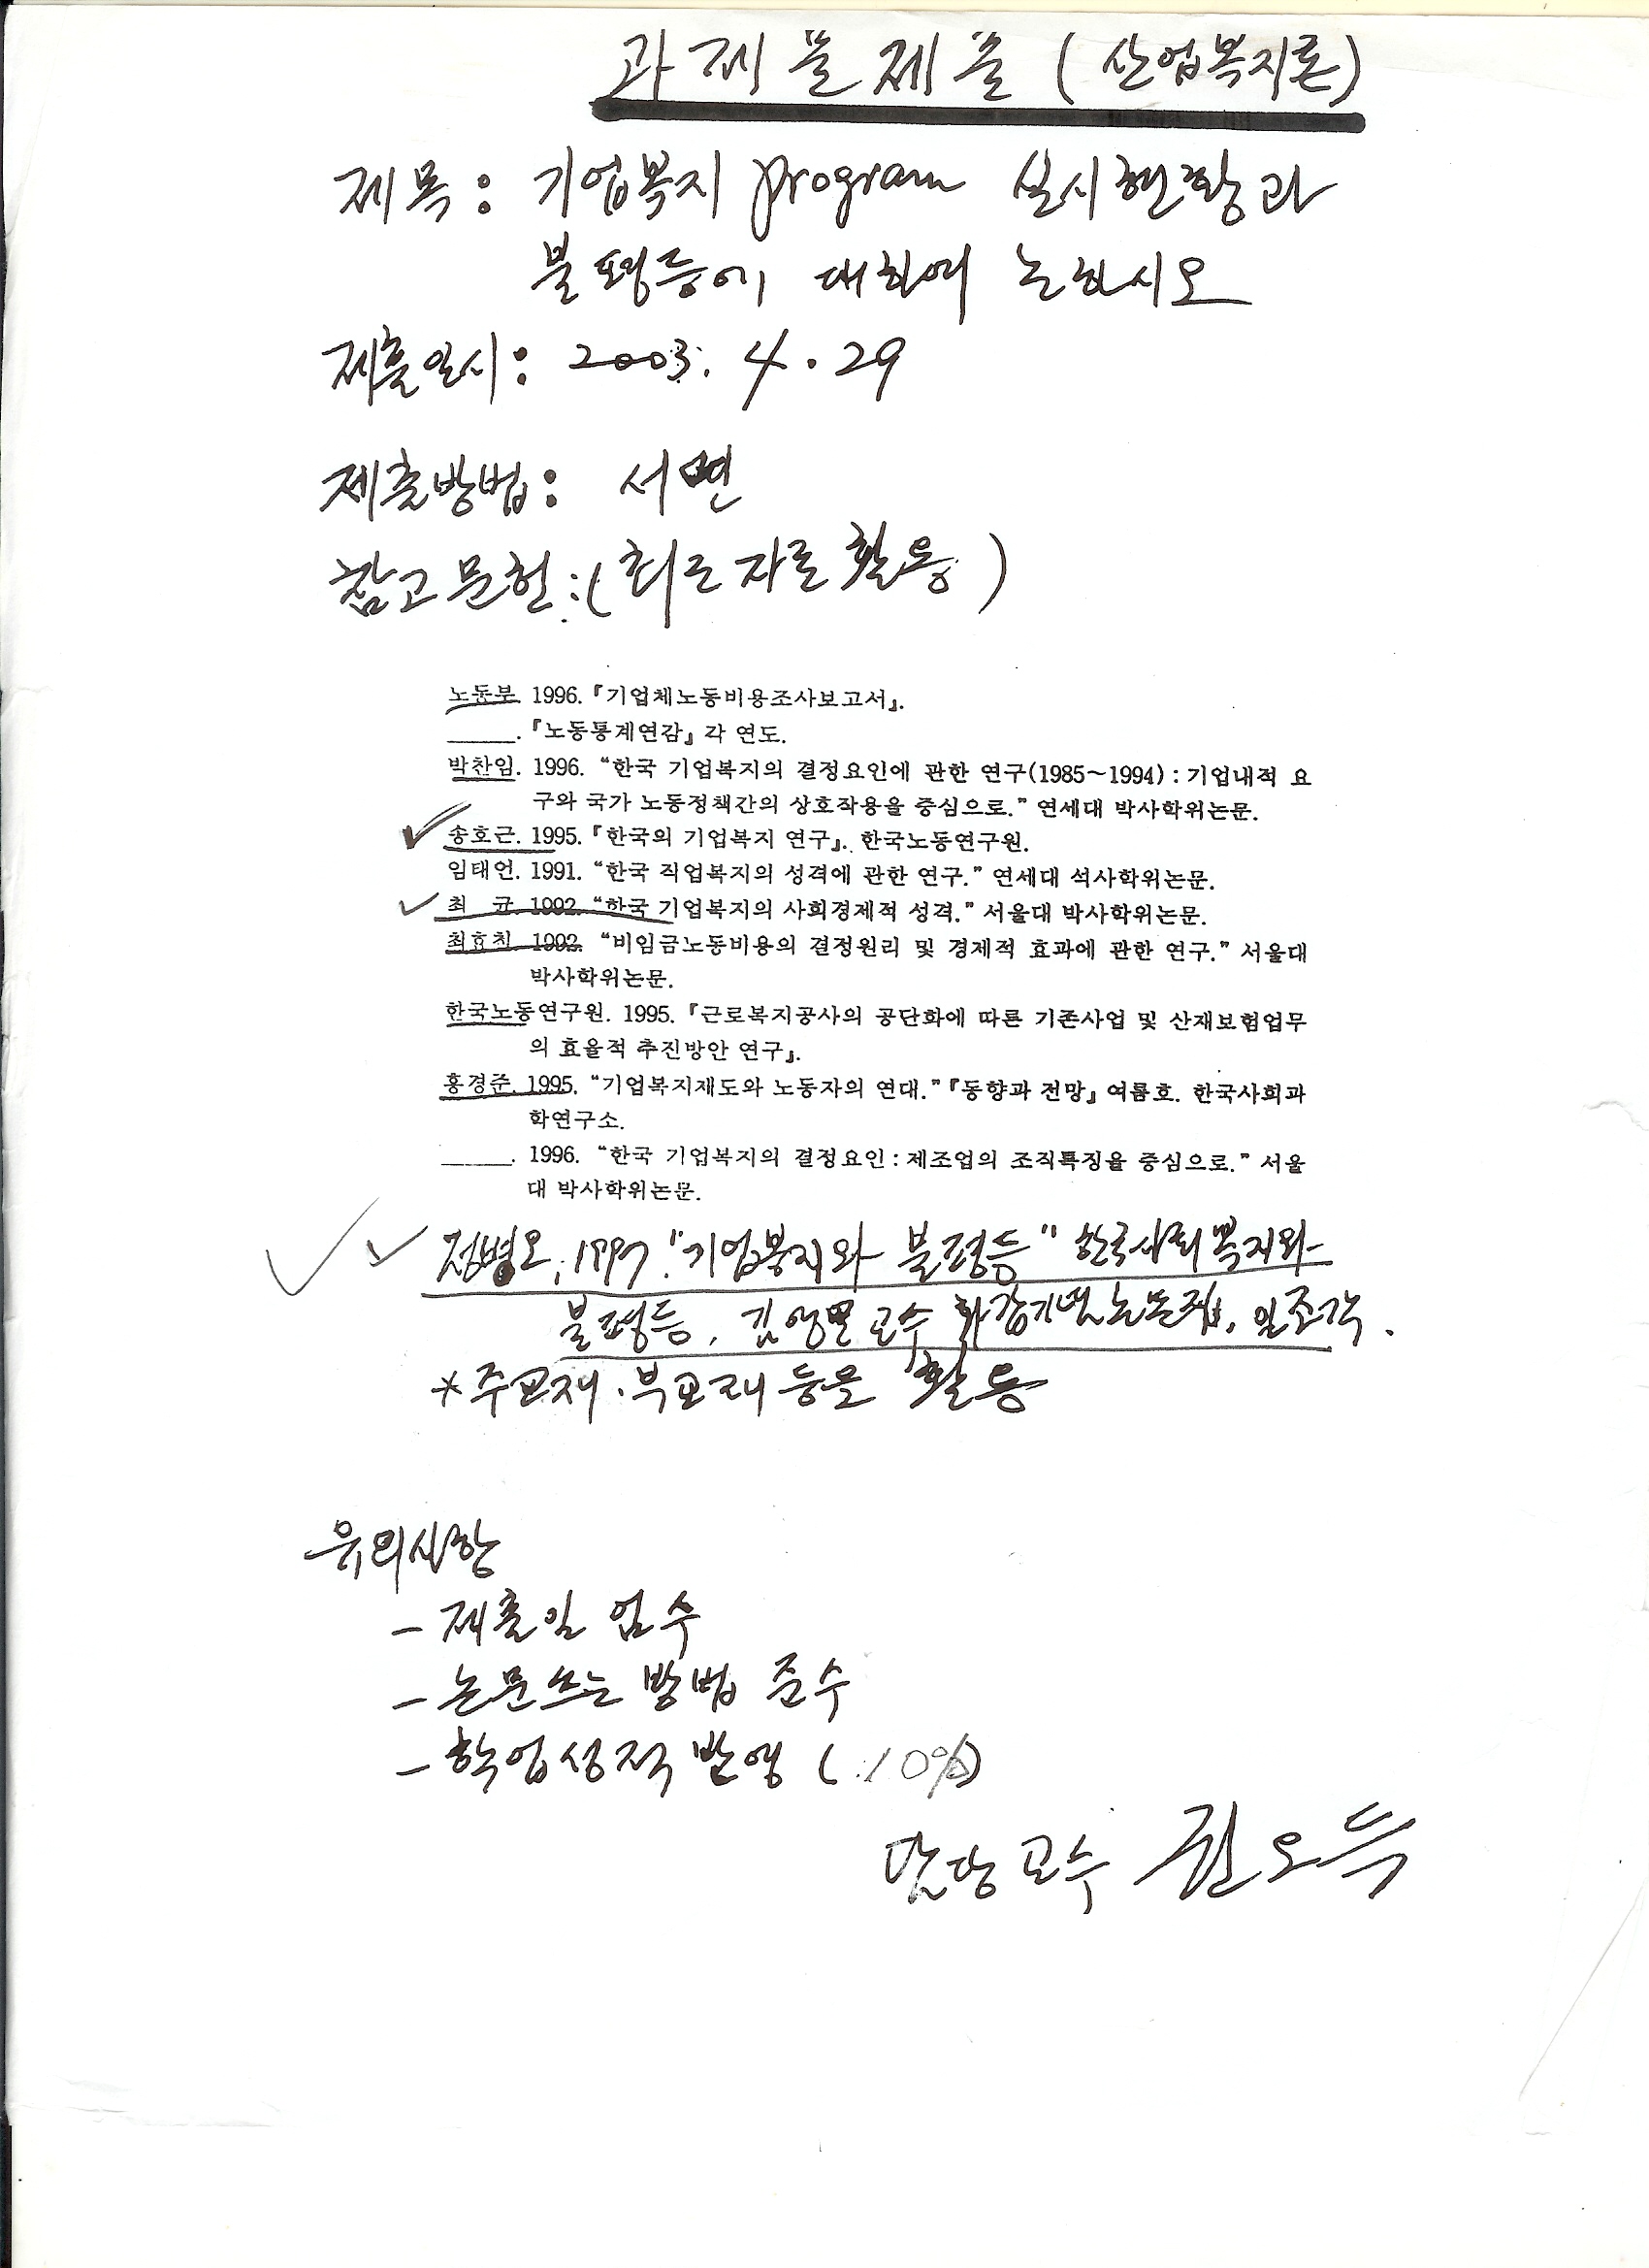 과제물제출 (산업복지론)
제목: 기업복지 program 실시현황과
불평등에 대하여 논하시오
제출일시: 2003. 4. 29
제출방법: 서면
참고문헌:(최근자료활용)
노동부. 1996.『기업체노동비용조사보고서』.
_____.『노동통계연감』각 연도.
박찬임. 1996. “한국 기업복지의 결정요인에 관한 연구(1985~1994) : 기업내적 요
구와 국가 노동정책간의 상호작용을 중심으로.” 연세대 박사학위논문.
송호근. 1995.『한국의 기업복지 연구』. 한국노동연구원.
임태언. 1991. “한국 직업복지의 성격에 관한 연구.” 연세대 석사학위논문.
최 균. 1992. “한국 기업복지의 사회경제적 성격.” 서울대 박사학위논문.
1992. “비임금노동비용의 결정원리 및 경제적 효과에 관한 연구.” 서울대
박사학위논문.
한국노동연구원. 1995.『근로복지공사의 공단화에 따른 기존사업 및 산재보험업무
의 효율적 추진방안 연구』.
홍경준. 1995. “기업복지재도와 노동자의 연대.”『동향과 전망』여름호. 한국사회과
학연구소.
_____. 1996. “한국 기업복지의 결정요인 : 제조업의 조직특징을 중심으로.” 서울
대 박사학위논문.
정병오, 1997. "기업복지와 불평등" 한국사회복지와
불평등, 교수 화갑기념논문집, 일조각.
*주교재·부교재 등을 활용
유의사항
- 제출일 엄수
- 논문쓰는 방법 준수
- 학업성적반영 (10%)
담당교수 권오득